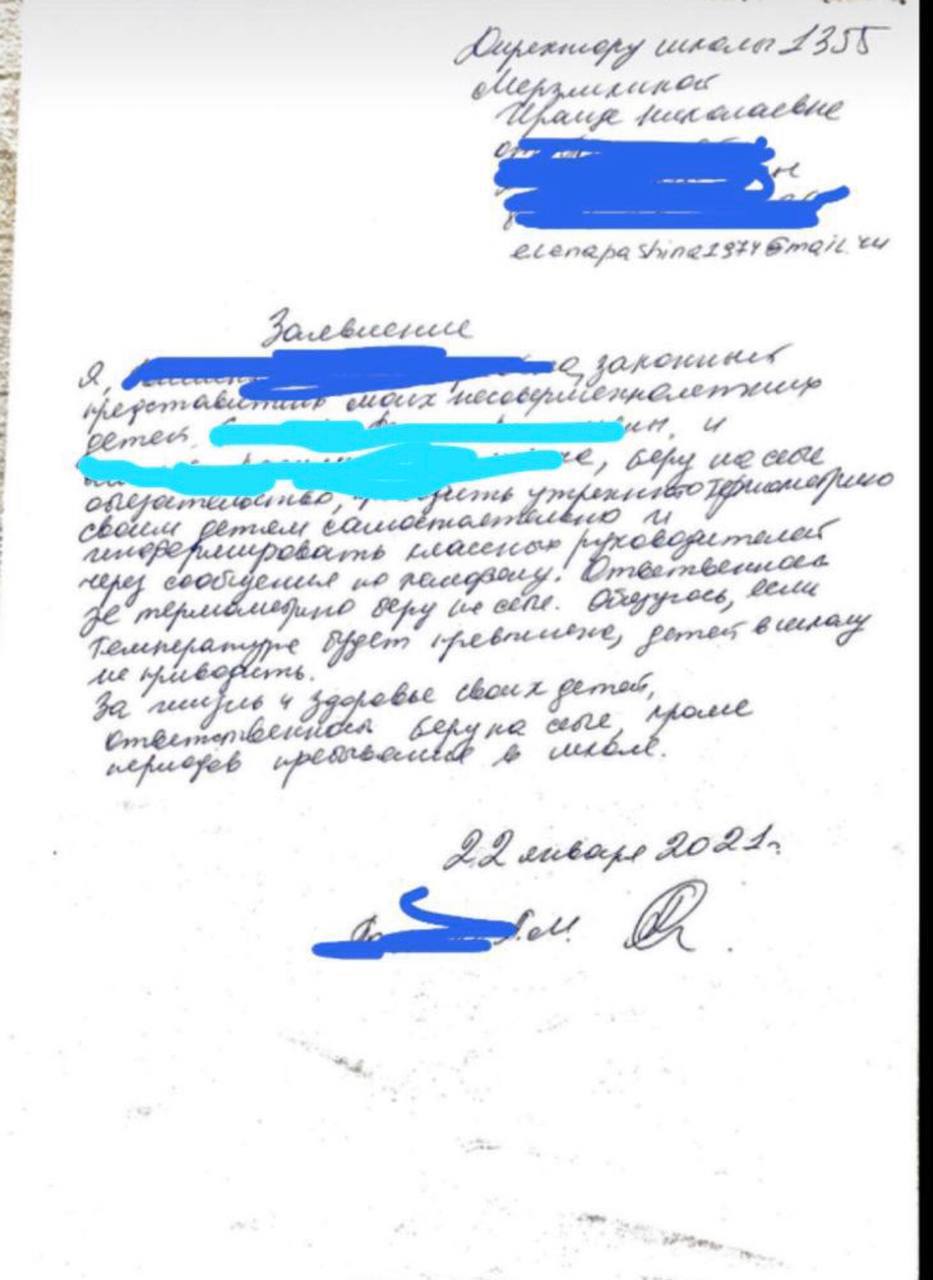 Директору школы 1355
Мерзликиной
Ираиде Николаевне
elenapashina1974@mail.ru
Заявление
Я, законный
представитель моих несовершеннолетних
детей, и
, беру на себя
обязательство, утреннюю термометрию
своим детям самостоятельно и
информировать классных руководителей
через сообщения по телефону. Ответственность
за термометрию беру на себя. Обязуюсь, если
температура будет превышена, детей в школу
не приводить.
За жизнь и здоровье своих детей,
ответственность беру на себя, кроме
периодов пребывания в школе.
22 января 2021г.